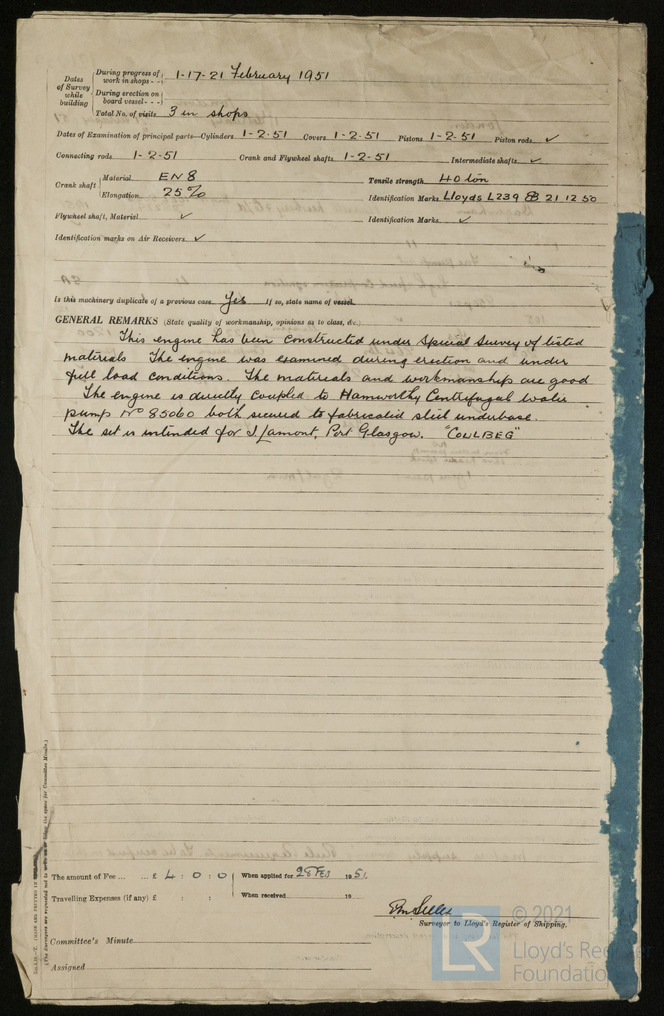 Dates of Survey while building
During progress of work in shops - - 1-17-21 February 1951
During erection on board vessel - - -
Total No. of visits 3 in shops
Dates of Examination of principal parts—Cylinders 1-2-51 Covers 1-2-51 Pistons 1-2-51 Piston rods ✓
Connecting rods 1-2-51 Crank and Flywheel shafts 1-2-51 Intermediate shafts ✓
Crank shaft Material EN8 Tensile strength 40 ton
Elongation 25% Identification Marks Lloyds L239 21 12 50
Flywheel shaft, Material ✓ Identification Marks ✓
Identification marks on Air Receivers ✓
Is this machinery duplicate of a previous case Yes If so, state name of vessel
GENERAL REMARKS (State quality of workmanship, opinions as to class, &c.)
This engine has been constructed under Special Survey of listed
materials The engine was examined during erection and under
full load conditions. The materials and workmanship are good
The engine is directly coupled to Hamworthy Centrifugal water
pump No 85060 both secured to fabricated steel underbase.
The set is intended for J. Lamont, Port Glasgow. "COULBEG"
The amount of Fee ... ... £ 4 : 0 : 0 When applied for 28 FEB 1951
Travelling Expenses (if any) £ : : When received 19
Surveyor to Lloyd's Register of Shipping.
Committee's Minute
Assigned
(The Surveyors are requested not to write on or below the space for Committee Minute.)
LR
© 2021
Lloyd's Register
Foundation